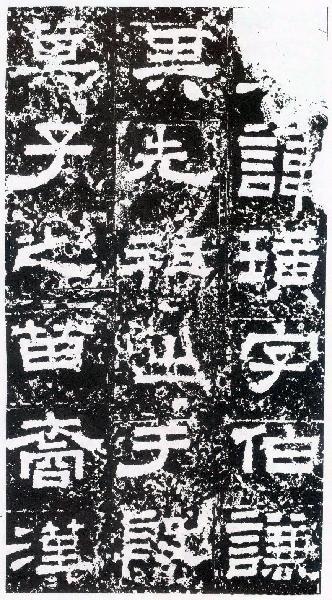 諱璜字伯謙
其先祖出于殷
箕子之苗裔漢